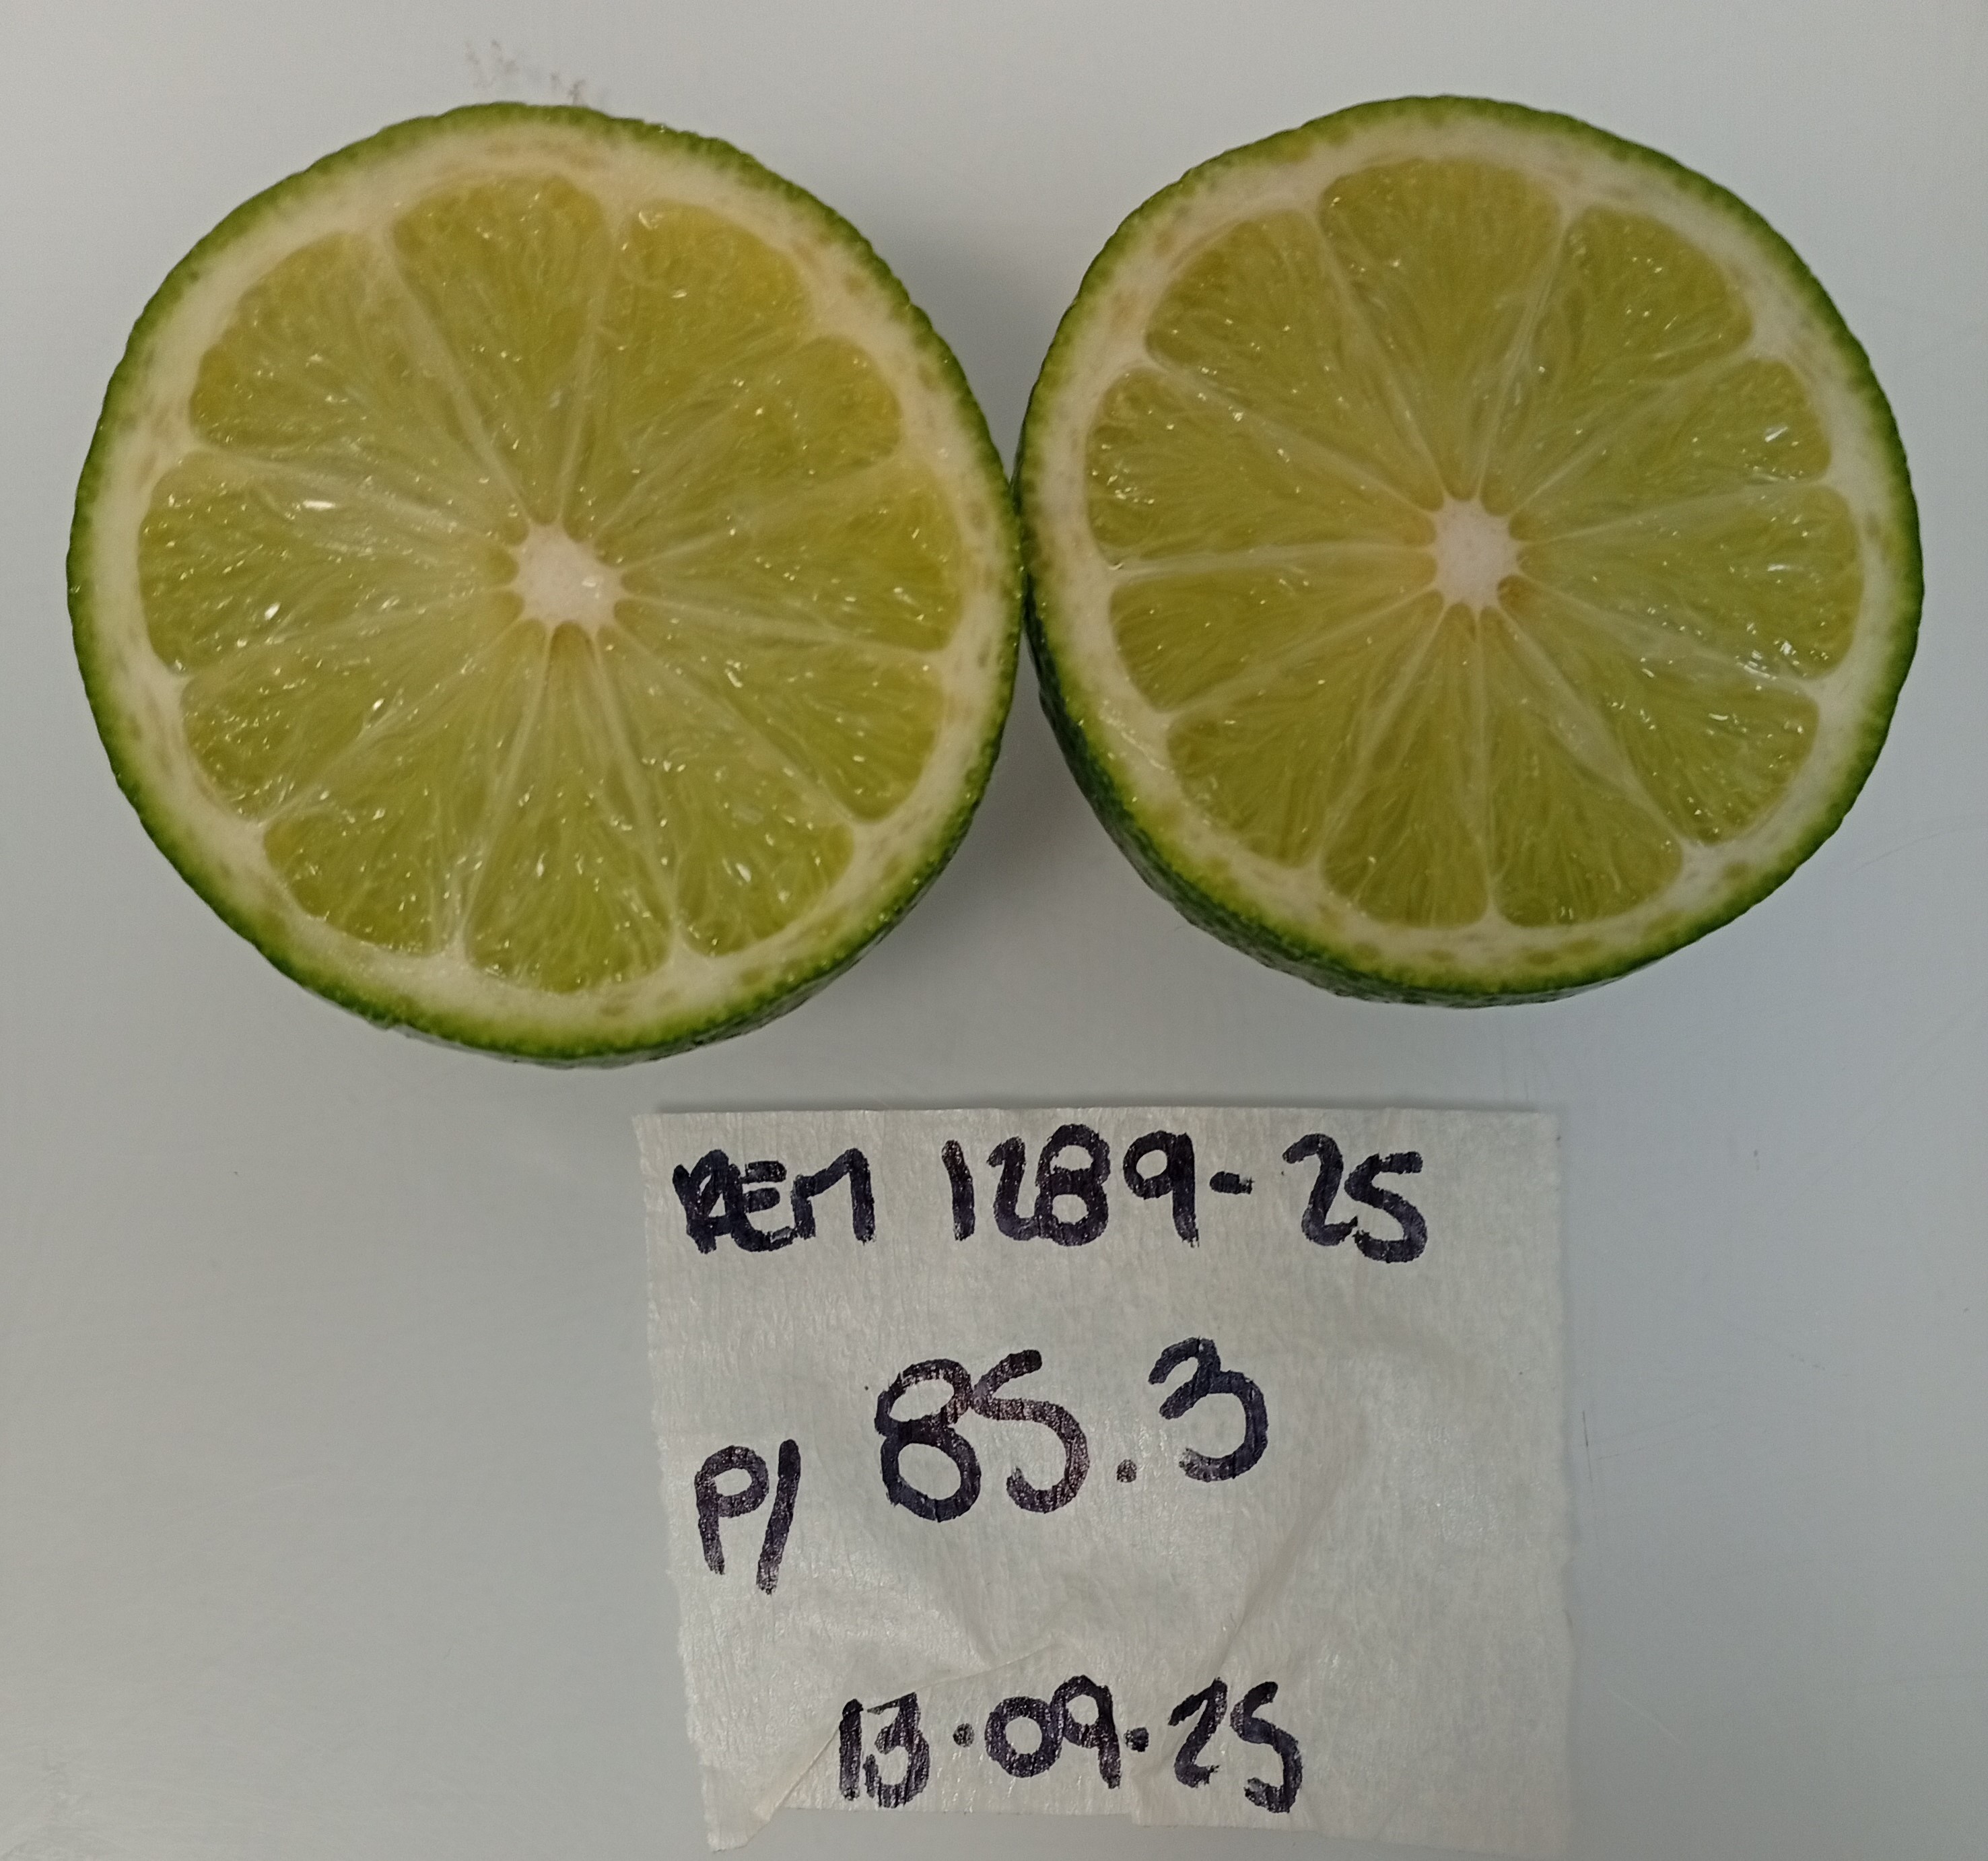 REM 1289-25
P/ 85.3
13.09.25